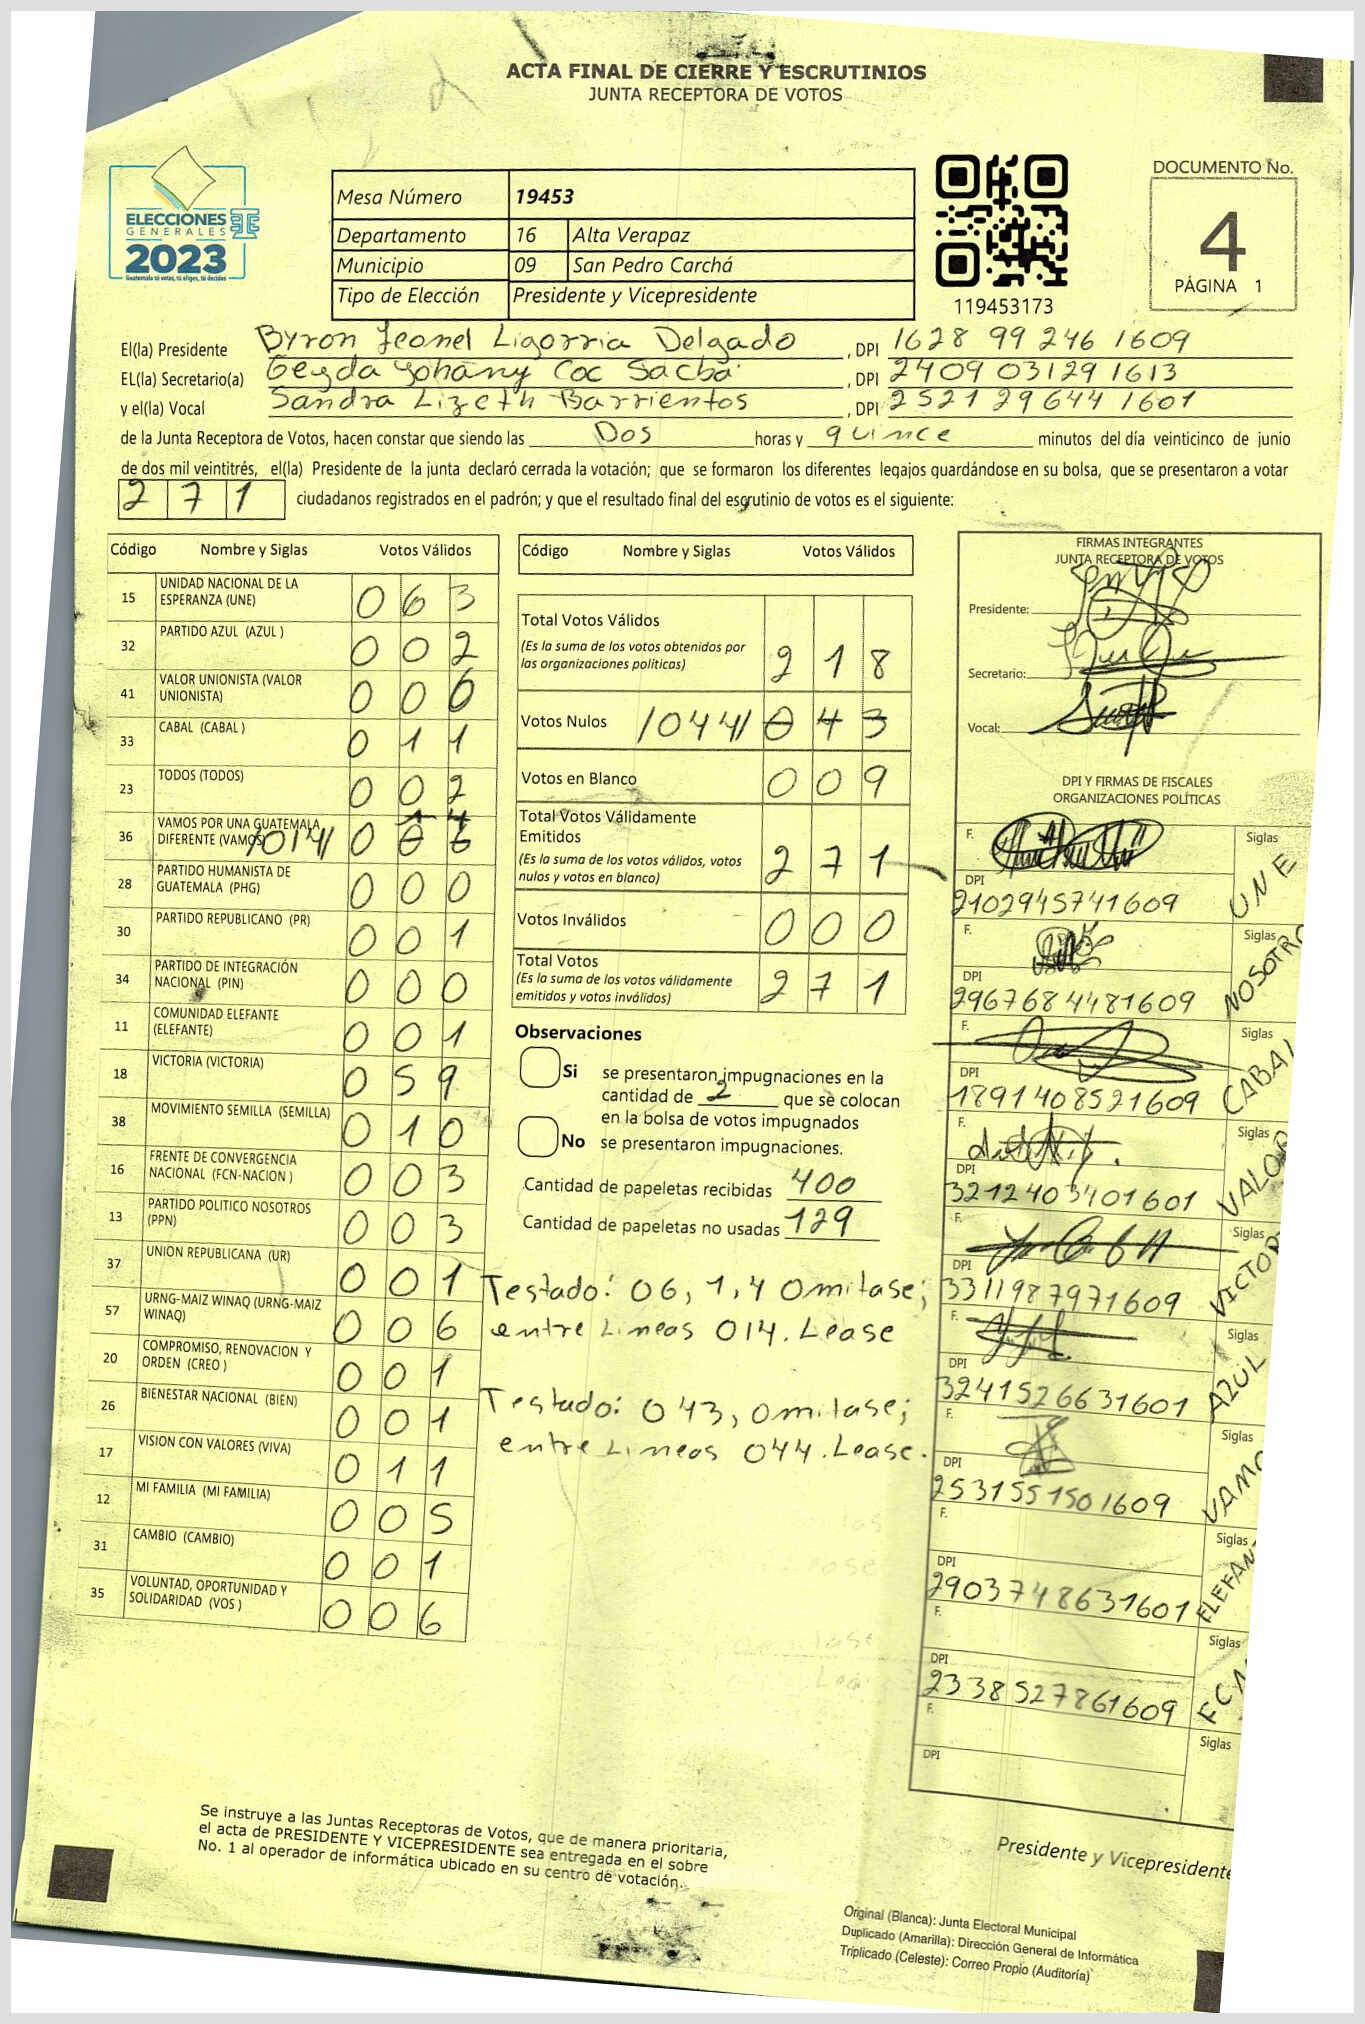 ACTA FINAL DE CIERRE Y ESCRUTINIOS
JUNTA RECEPTORA DE VOTOS
ELECCIONES
GENERALES
2023
Guatemala tú votas, tú eliges, tú decides
Mesa Número 19453
Departamento 16 Alta Verapaz
Municipio 09 San Pedro Carchá
Tipo de Elección Presidente y Vicepresidente
119453173
DOCUMENTO No.
4
PÁGINA 1
El(la) Presidente Byron Leonel Ligorria Delgado, DPI 1628 99 246 1609
EL(la) Secretario(a) Geyda Yohany Coc Sacba, DPI 2409 03129 1613
y el(la) Vocal Sandra Lizeth Barrientos, DPI 2521 29644 1601
de la Junta Receptora de Votos, hacen constar que siendo las Dos horas y quince minutos del día veinticinco de junio
de dos mil veintitrés, el(la) Presidente de la junta declaró cerrada la votación; que se formaron los diferentes legajos quardándose en su bolsa, que se presentaron a votar
271 ciudadanos registrados en el padrón; y que el resultado final del escrutinio de votos es el siguiente:
Código Nombre y Siglas Votos Válidos
15 UNIDAD NACIONAL DE LA ESPERANZA (UNE) 063
32 PARTIDO AZUL (AZUL ) 002
41 VALOR UNIONISTA (VALOR UNIONISTA) 006
33 CABAL (CABAL ) 011
23 TODOS (TODOS) 002
36 VAMOS POR UNA GUATEMALA DIFERENTE (VAMOS) /014/ 0
28 PARTIDO HUMANISTA DE GUATEMALA (PHG) 000
30 PARTIDO REPUBLICANO (PR) 001
34 PARTIDO DE INTEGRACIÓN NACIONAL (PIN) 000
11 COMUNIDAD ELEFANTE (ELEFANTE) 001
18 VICTORIA (VICTORIA) 059
38 MOVIMIENTO SEMILLA (SEMILLA) 010
16 FRENTE DE CONVERGENCIA NACIONAL (FCN-NACION ) 003
13 PARTIDO POLITICO NOSOTROS (PPN) 003
37 UNION REPUBLICANA (UR) 001
57 URNG-MAIZ WINAQ (URNG-MAIZ WINAQ) 006
20 COMPROMISO, RENOVACION Y ORDEN (CREO ) 001
26 BIENESTAR NACIONAL (BIEN) 001
17 VISION CON VALORES (VIVA) 011
12 MI FAMILIA (MI FAMILIA) 005
31 CAMBIO (CAMBIO) 001
35 VOLUNTAD, OPORTUNIDAD Y SOLIDARIDAD (VOS ) 006
Código Nombre y Siglas Votos Válidos
Total Votos Válidos 218
(Es la suma de los votos obtenidos por
las organizaciones políticas)
Votos Nulos /044/ 043
Votos en Blanco 009
Total Votos Válidamente
Emitidos 271
(Es la suma de los votos válidos, votos
nulos y votos en blanco)
Votos Inválidos 000
Total Votos 271
(Es la suma de los votos válidamente
emitidos y votos inválidos)
Observaciones
Si se presentaron impugnaciones en la
cantidad de 2 que se colocan
en la bolsa de votos impugnados
No se presentaron impugnaciones.
Cantidad de papeletas recibidas 400
Cantidad de papeletas no usadas 129
Testado: 06, 1, 4 Omitase;
entre Lineas 014. Lease
Testado: 043, Omitase;
entre Lineas 044. Lease.
FIRMAS INTEGRANTES
JUNTA RECEPTORA DE VOTOS
Presidente:
Secretario:
Vocal:
DPI Y FIRMAS DE FISCALES
ORGANIZACIONES POLÍTICAS
F. Siglas UNE
DPI 2102945741609
F. Siglas NOSOTRO
DPI 2967684481609
F. Siglas CABAL
DPI 1891408521609
F. Siglas VALOR
DPI 3212403401601
F. Siglas VICTOR
DPI 3311987971609
F. Siglas AZUL
DPI 3241526631601
F. Siglas VAMO
DPI 2531551501609
F. Siglas ELEFAN
DPI 2903748631601
F. Siglas FCN
DPI 2338527861609
F. Siglas
DPI
Se instruye a las Juntas Receptoras de Votos, que de manera prioritaria,
el acta de PRESIDENTE Y VICEPRESIDENTE sea entregada en el sobre
No. 1 al operador de informática ubicado en su centro de votación.
Presidente y Vicepresidente
Original (Blanca): Junta Electoral Municipal
Duplicado (Amarilla): Dirección General de Informática
Triplicado (Celeste): Correo Propio (Auditoría)